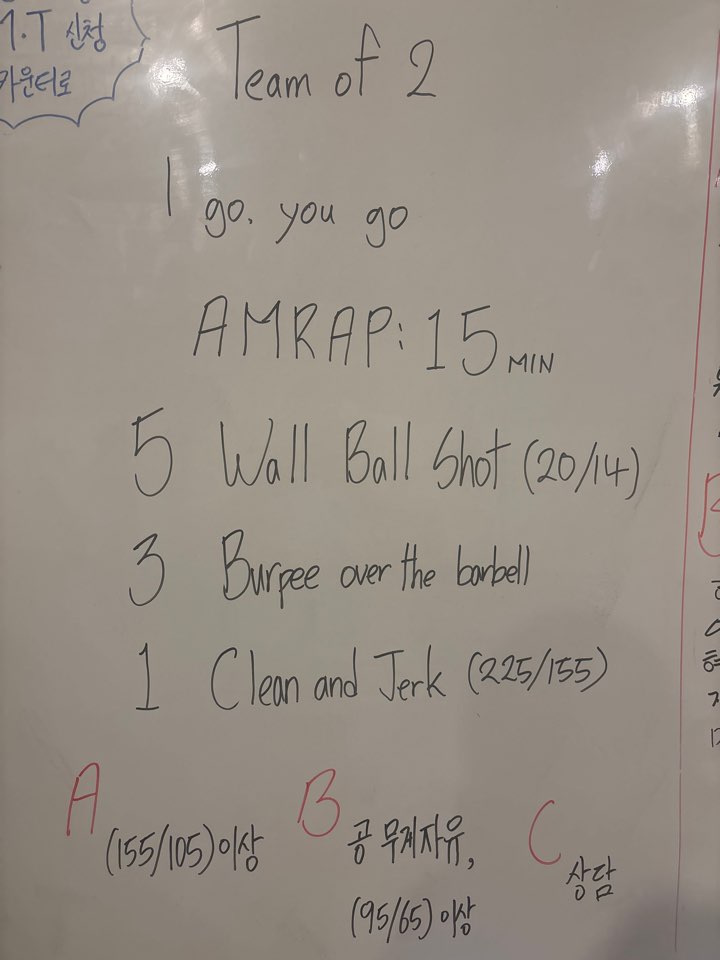 1.T 신청
카운터로
Team of 2
I go. you go
AMRAP: 15 MIN
5 Wall Ball Shot (20/14)
3 Burpee over the barbell
1 Clean and Jerk (225/155)
A (155/105)이상
B 공 무게자유,
(95/65) 이상
C 상담